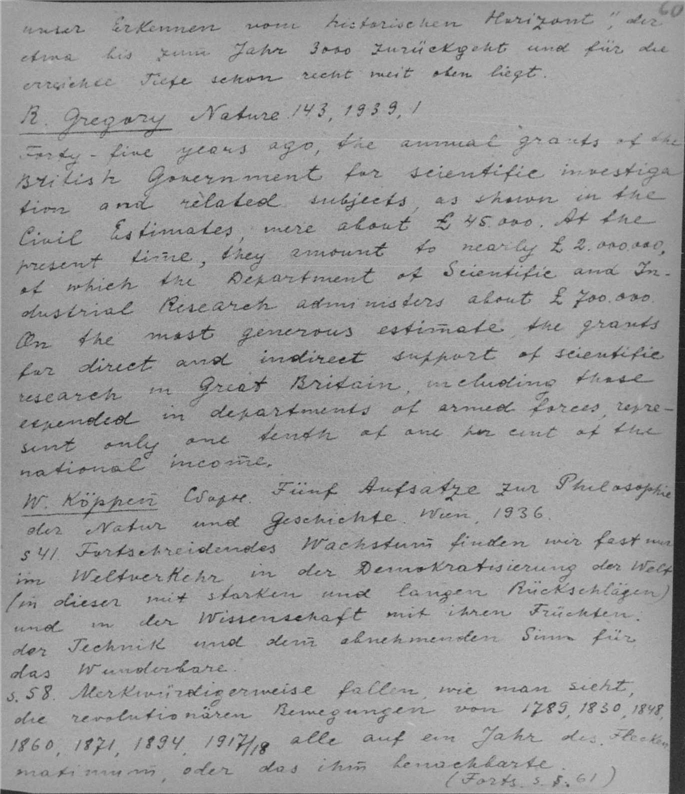 60
unser Erkennen vom "historischen Horizont", der
etwa bis zum Jahr 3000 zurückgeht und für die
erreichte Tiefe schon recht weit oben liegt.
R. Gregory Nature 143, 1939, 1
Forty-five years ago, the annual grants of the
British Government for scientific investiga
tion and related subjects, as shown in the
Civil Estimates, were about £ 45.000. At the
present time, they amount to nearly £ 2.000000,
of which the Department of Scientific and In-
dustrial Research administers about £ 700.000.
On the most generous estimate, the grants
for direct and indirect support of scientific
research in Great Britain, including those
expended in departments of armed forces, repre-
sent only one tenth of one per cent of the
national income.
W. Köppen Сборн. Fünf Aufsatze zur Philosophie
der Natur und Geschichte. Wien, 1936.
s 41. Fortschreidendes Wachstum finden wir fast nur
im Weltverkehr, in der Demokratisierung der Welt
(in dieser mit starken und langen Rückschlägen)
und in der Wissenschaft mit ihren Früchten:
der Technik und dem abnehmenden Sinn für
das Wunderbare.
s. 58. Merkwürdigerweise fallen, wie man sieht,
die revolutionären Bewegungen von 1789, 1830, 1848,
1860, 1871, 1894, 1917/18 alle auf ein Jahr des Flecken
maximum, oder das ihm benachbarte.
(Forts. s. s. 61)